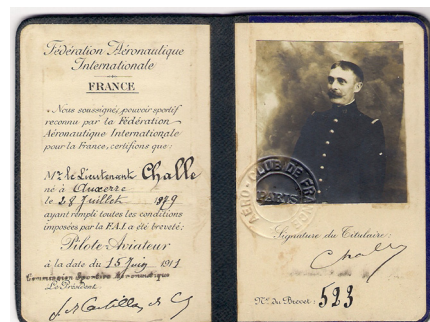 Fédération Aéronautique
Internationale
FRANCE
Nous soussignés, pouvoir sportif
reconnu par la Fédération
Aéronautique Internationale
pour la France, certifions que:
Mr le Lieutenant Challe
né à Auxerre
le 28 Juillet 1879
ayant rempli toutes les conditions
imposées par la F.A.I. a été breveté:
Pilote-Aviateur
à la date du 15 Juin 1911
Commission Sportive Aéronautique
Le Président
AERO-CLUB DE FRANCE
PARIS
Signature du Titulaire:
Challe
No. du Brevet: 523